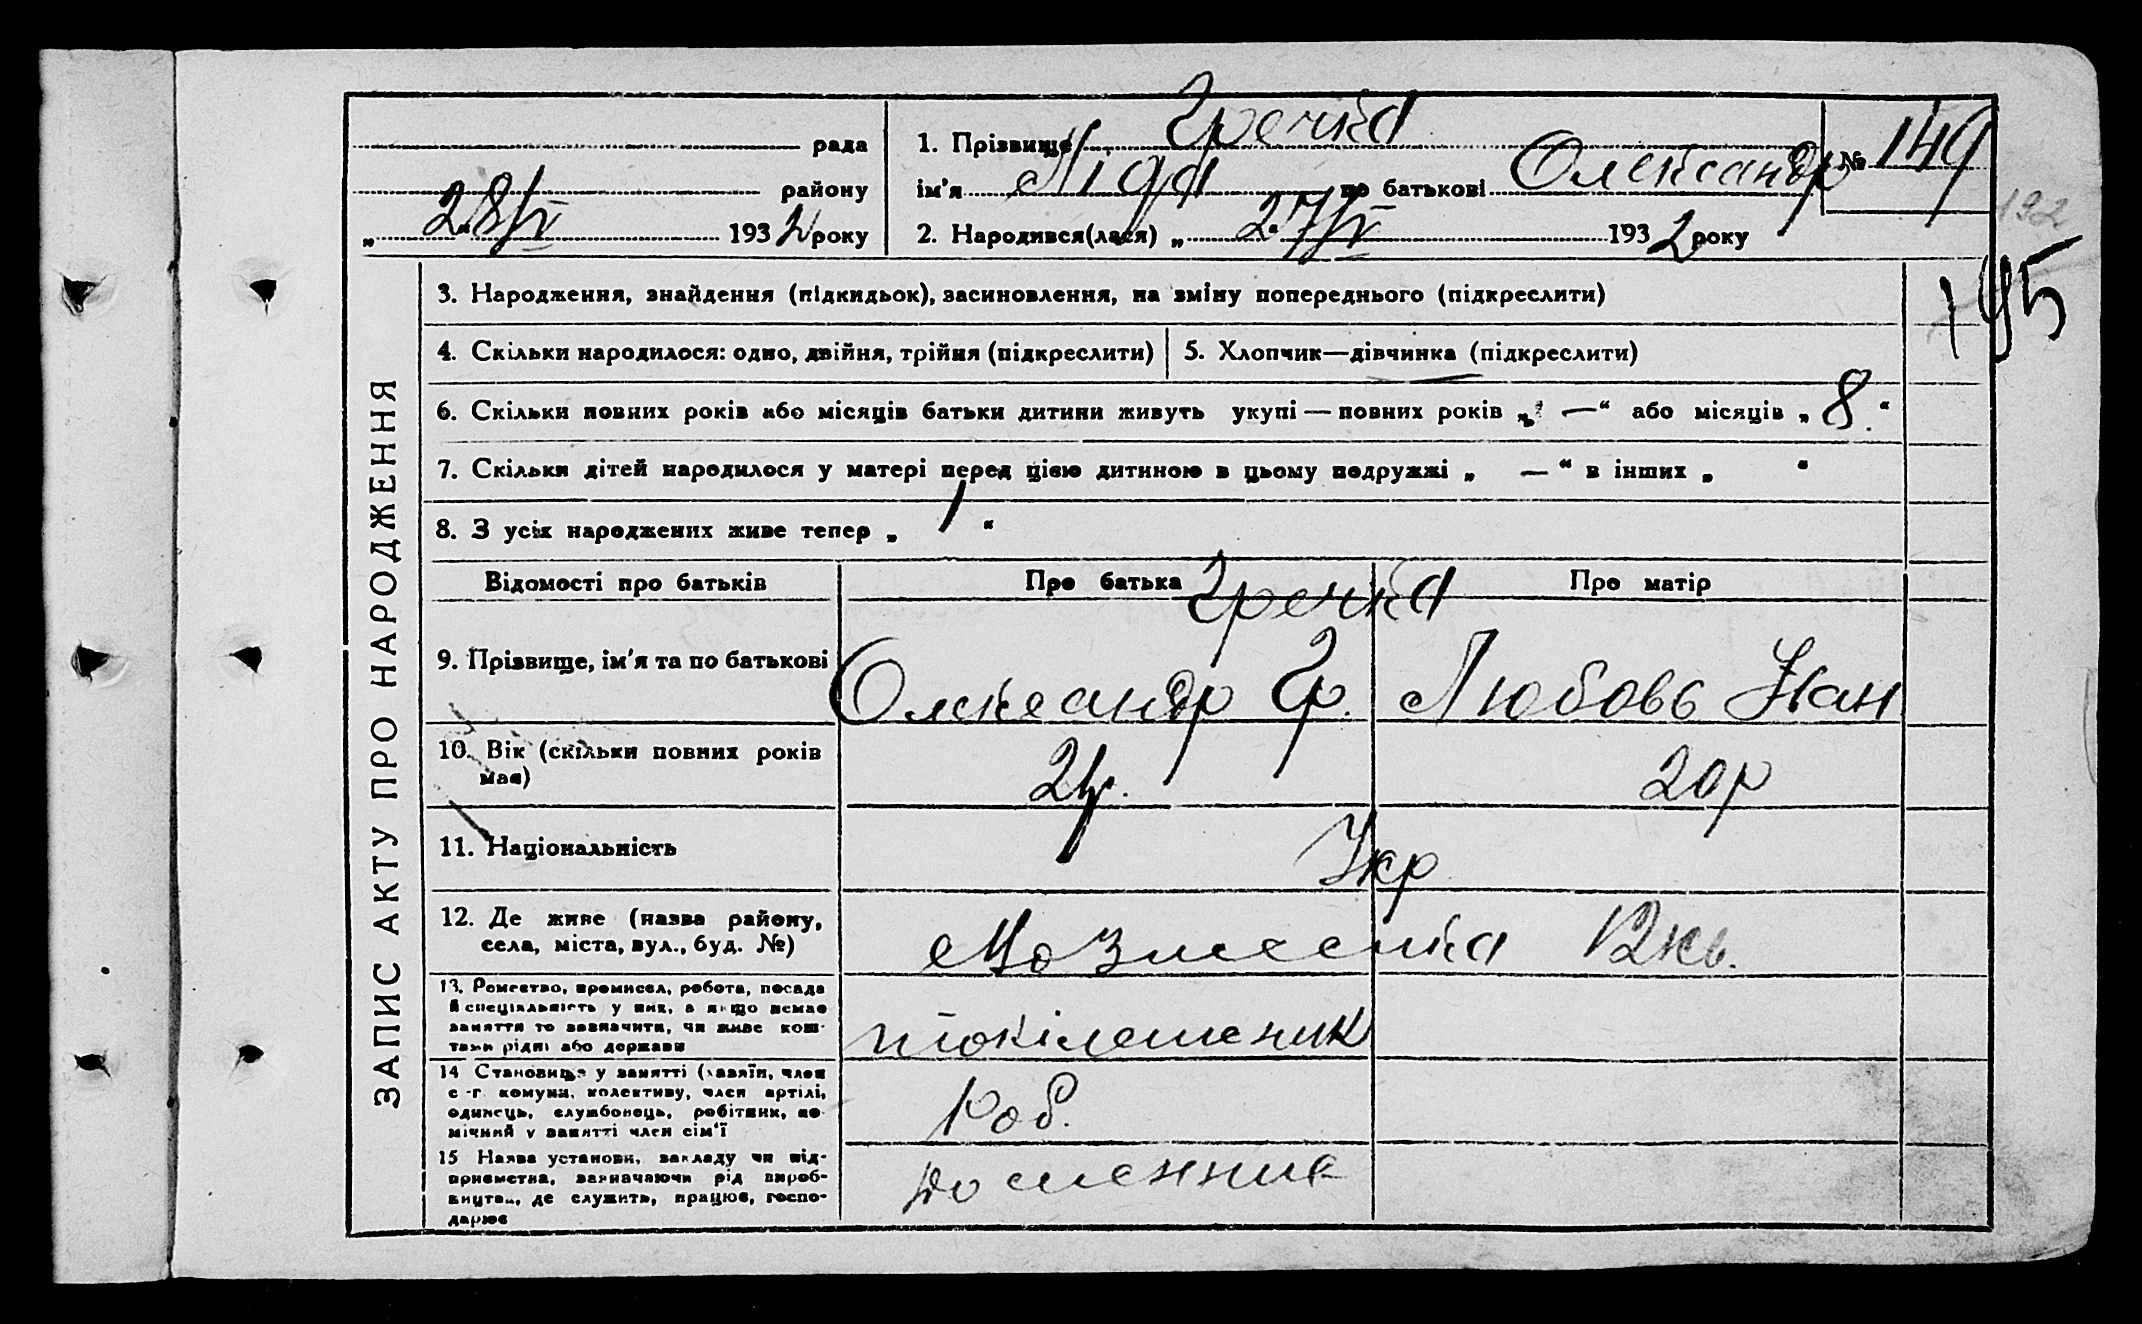 рада
району
„ 28/IV 1932 року
1. Прізвище Гречка
ім'я Ліда по батькові Олександр
2. Народився(лася) „ 27/IV 1932 року
№ 149
192
195
ЗАПИС АКТУ ПРО НАРОДЖЕННЯ
3. Народження, знайдення (підкидьок), засиновлення, на зміну попереднього (підкреслити)
4. Скільки народилося: одно, двійня, трійня (підкреслити)
5. Хлопчик—дівчинка (підкреслити)
6. Скільки повних років або місяців батьки дитини живуть укупі — повних років „ —“ або місяців „ 8 “
7. Скільки дітей народилося у матері перед цією дитиною в цьому подружжі „ — “ в інших „ “
8. З усіх народжених живе тепер „ 1 “
Відомості про батьків
Про батька
Про матір
Гречка
9. Прізвище, ім'я та по батькові
Олександр Гр.
Любовь Іван
10. Вік (скільки повних років
має)
20р
11. Національність
Укр
12. Де живе (назва району,
села, міста, вул., буд. №)
Вознесенка 12 кв.
13. Ремество, промисел, робота, посада
й спеціяльність у них, а якщо немає
заняття то зазначити, чи живе кош-
тами рідні або держави
14 Становище у занятті (хазяїн, член
с.-г. комуни, колективу, член артілі,
одинець, службовець, робітник, по-
мічний у занятті член сім'ї
Роб.
15 Назва установи, закладу чи під-
приємства, зазначаючи рід вироб-
ництва, де служить, працює, госпо-
дарює